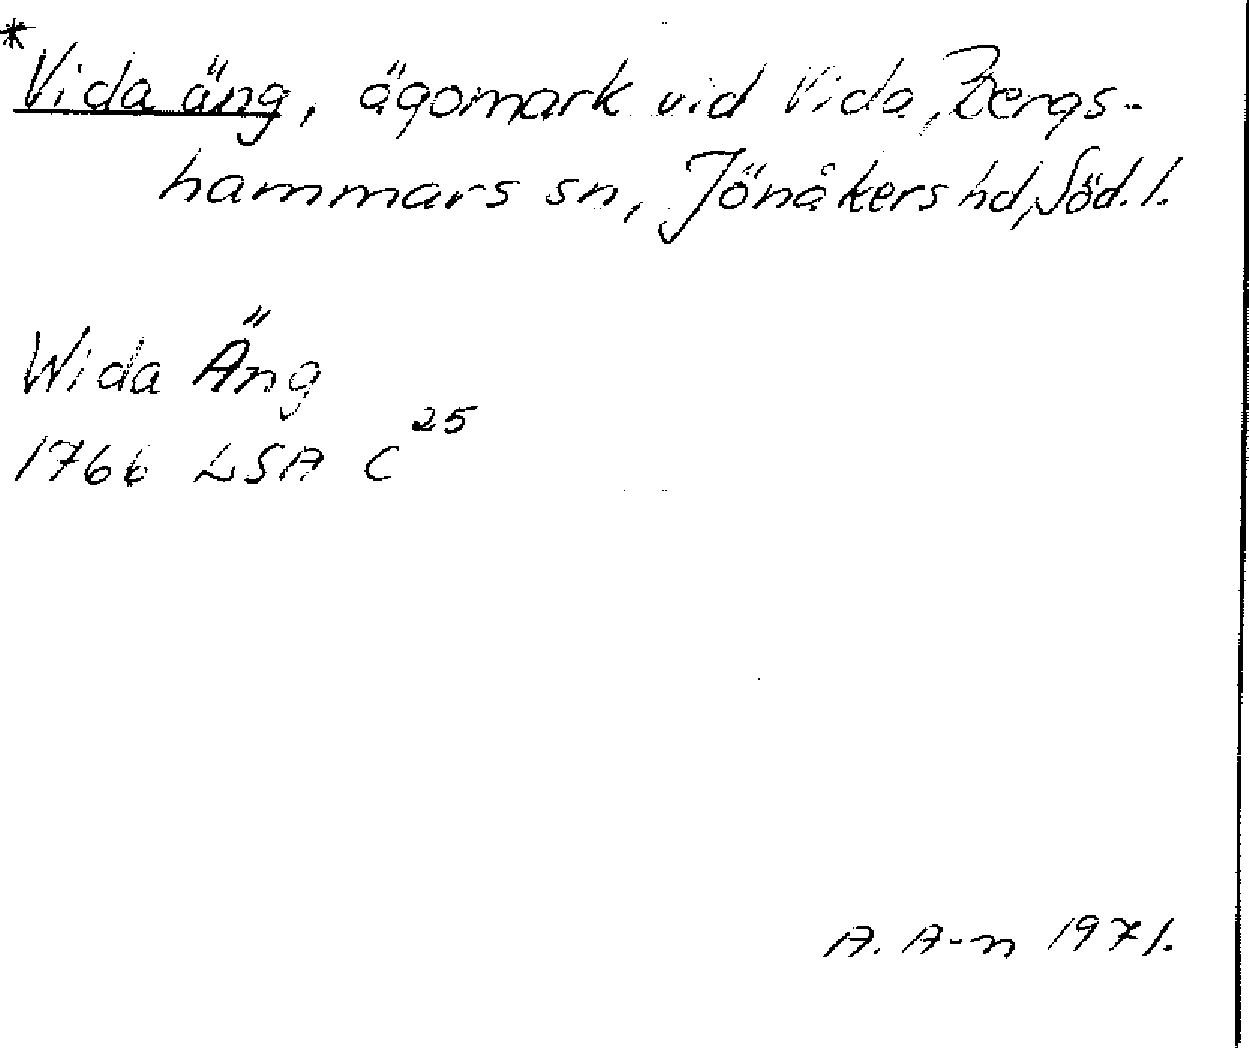 *Vida äng, ägomark vid Vida, Bergs-
hammars sn, Jönåkers hd, Söd.l.
Wida Äng
1766 LSA C²⁵
A. A-n 1971.